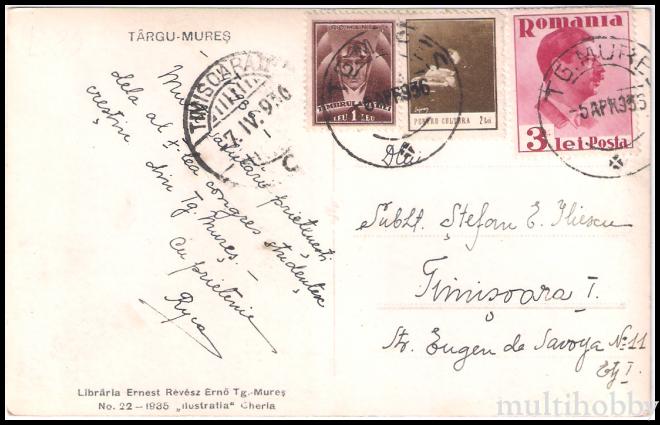 TÂRGU-MUREȘ
TIMIȘOARA
7 IV. 936
TIMBRUL AVIAȚIEI
LEU 1 LEU
PENTRU CULTURA 2 Lei
Romania
3 lei Posta
TG. MUREȘ
-5 APR 936
TG. MUREȘ
-5 APR 936
Multe salutări prietenești
dela al
lea congres studențesc
creștin din Tg. Mureș –
Cu prietenie
Dlui
Sublt. Ștefan E. Iliescu
Timisoara I.
Str. Eugen de Savoya No 11
Etj I.
Librăria Ernest Révész Ernő Tg.-Mureș
No. 22 – 1935 „Ilustratia" Gherla
multihobby